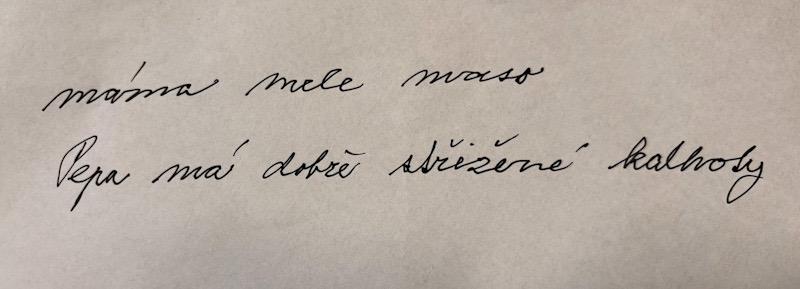 máma mele maso
Pepa má dobře střižené kalhoty